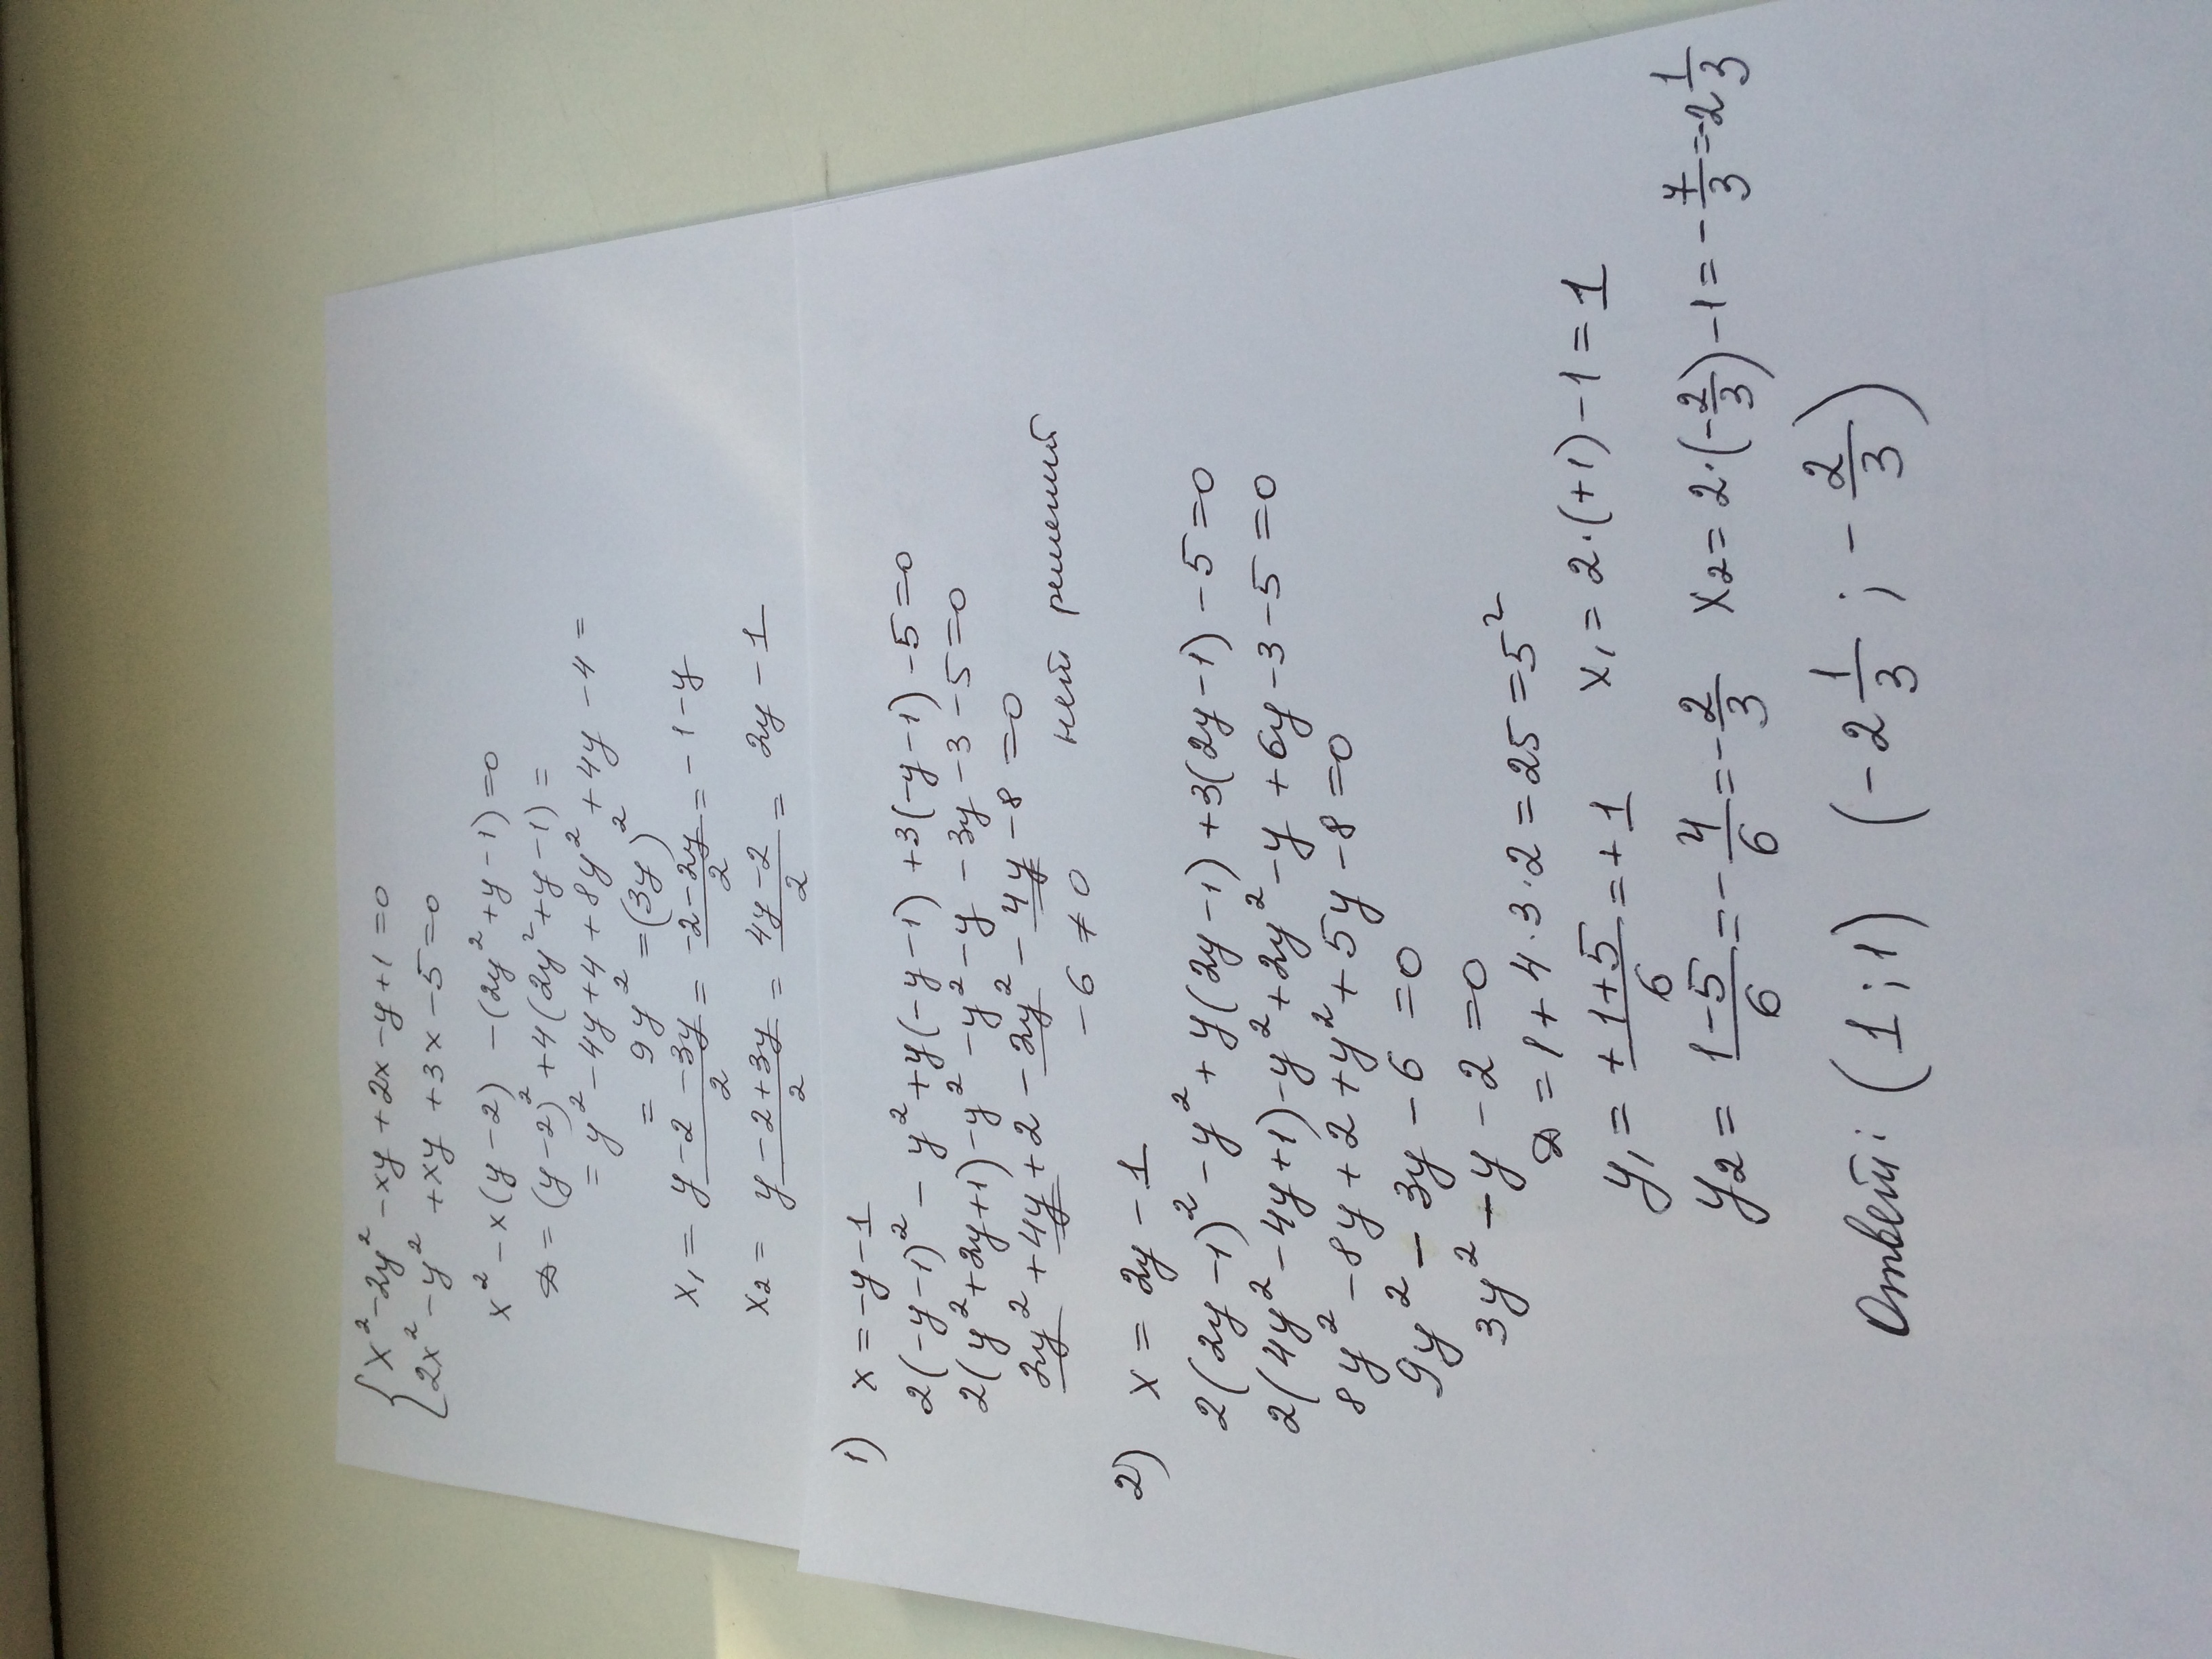 { x² - 2y² - xy + 2x - y + 1 = 0
2x² - y² + xy + 3x - 5 = 0
x² - x(y - 2) - (2y² + y - 1) = 0
D = (y - 2)² + 4(2y² + y - 1) =
= y² - 4y + 4 + 8y² + 4y - 4 =
= 9y² = (3y)²
x₁ = (y - 2 - 3y)/2 = (-2 - 2y)/2 = -1 - y
x₂ = (y - 2 + 3y)/2 = (4y - 2)/2 = 2y - 1
1) x = -y - 1
2(-y - 1)² - y² + y(-y - 1) + 3(-y - 1) - 5 = 0
2(y² + 2y + 1) - y² - y² - y - 3y - 3 - 5 = 0
2y² + 4y + 2 - 2y² - 4y - 8 = 0
-6 ≠ 0 нет решений
2) x = 2y - 1
2(2y - 1)² - y² + y(2y - 1) + 3(2y - 1) - 5 = 0
2(4y² - 4y + 1) - y² + 2y² - y + 6y - 3 - 5 = 0
8y² - 8y + 2 + y² + 5y - 8 = 0
9y² - 3y - 6 = 0
3y² - y - 2 = 0
D = 1 + 4·3·2 = 25 = 5²
y₁ = + (1 + 5)/6 = +1 x₁ = 2·(+1) - 1 = 1
y₂ = (1 - 5)/6 = - 4/6 = - 2/3 x₂ = 2·(- 2/3) - 1 = - 7/3 = -2 1/3
Ответ: (1; 1) (-2 1/3; - 2/3)